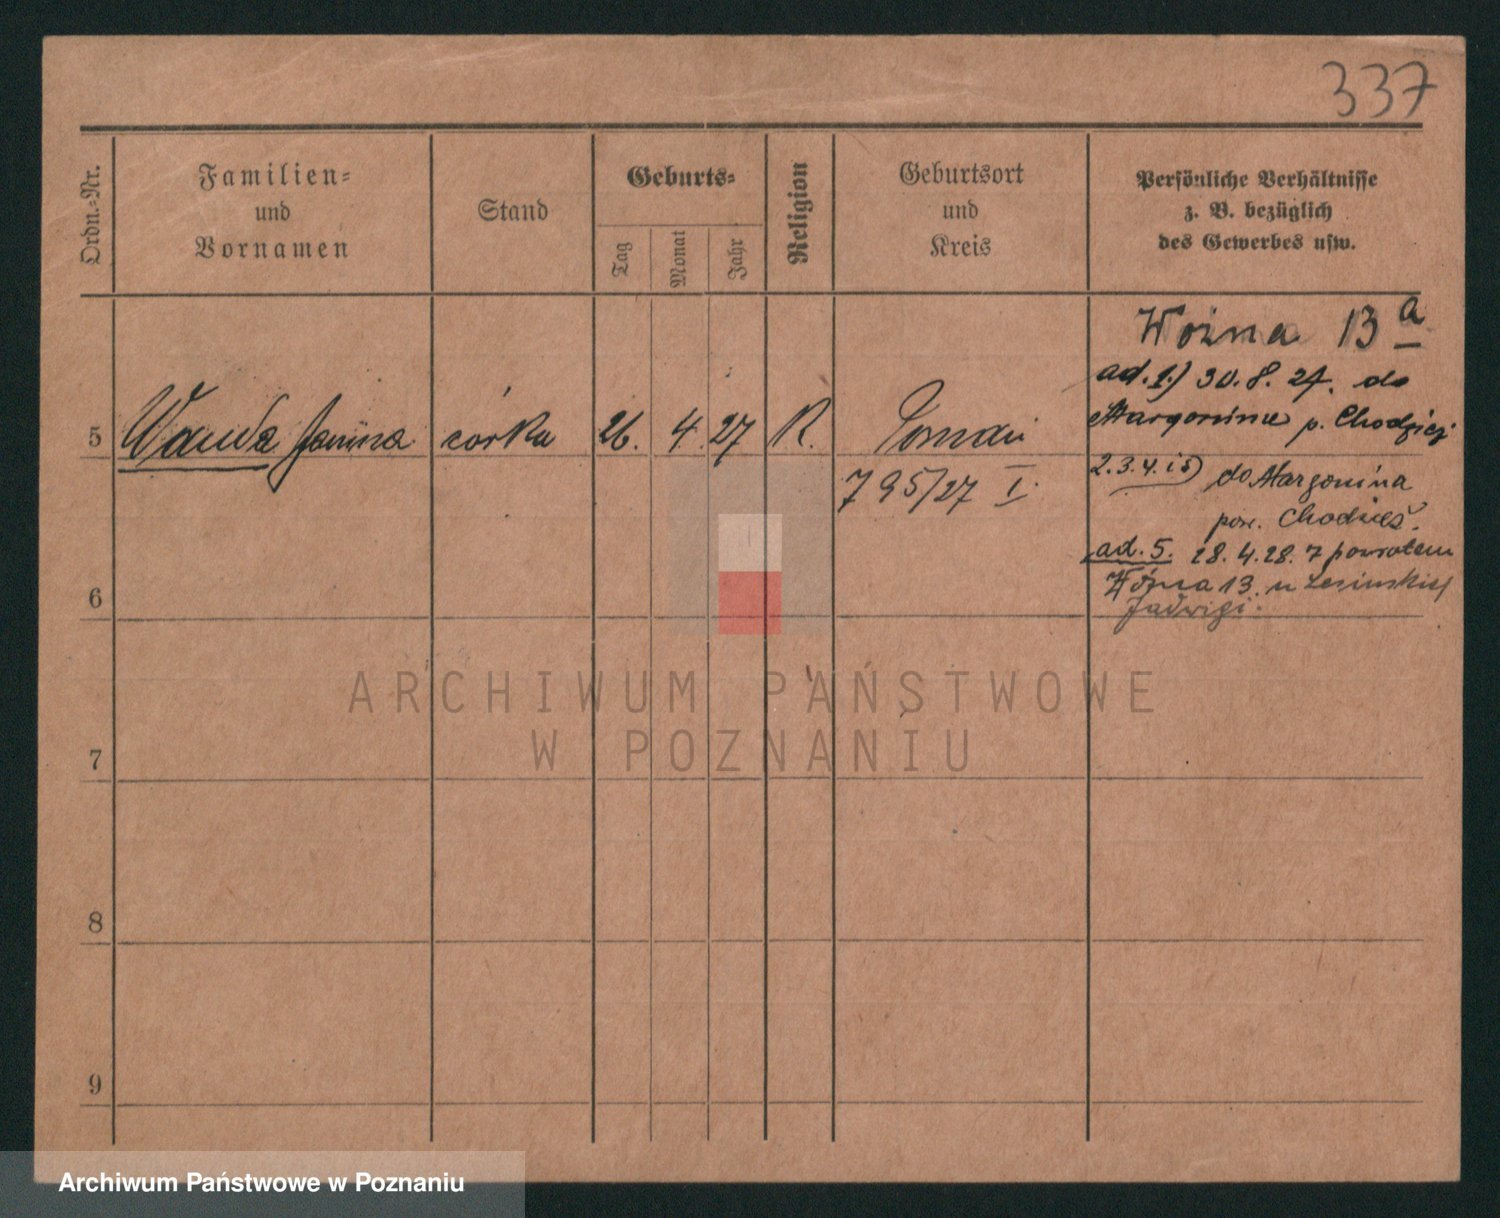 337
Ordn.-Nr.
Familien-
und
Vornamen
Stand
Geburts-
Tag
Monat
Jahr
Religion
Geburtsort
und
Kreis
Persönliche Verhältnisse
z. B. bezüglich
des Gewerbes usw.
Woźna 13 a
ad. 1.) 30. 8. 27. do
Margonina p. Chodzież
5 Wanda Janina córka 26. 4. 27 R. Poznań
795/27 I.
2. 3. 4. i 5) do Margonina
pow. Chodzież.
ad. 5. 28. 4. 28. z powrotem
Woźna 13. u Lesinskiej
Jadwigi.
6
7
8
9
ARCHIWUM PAŃSTWOWE
W POZNANIU
Archiwum Państwowe w Poznaniu